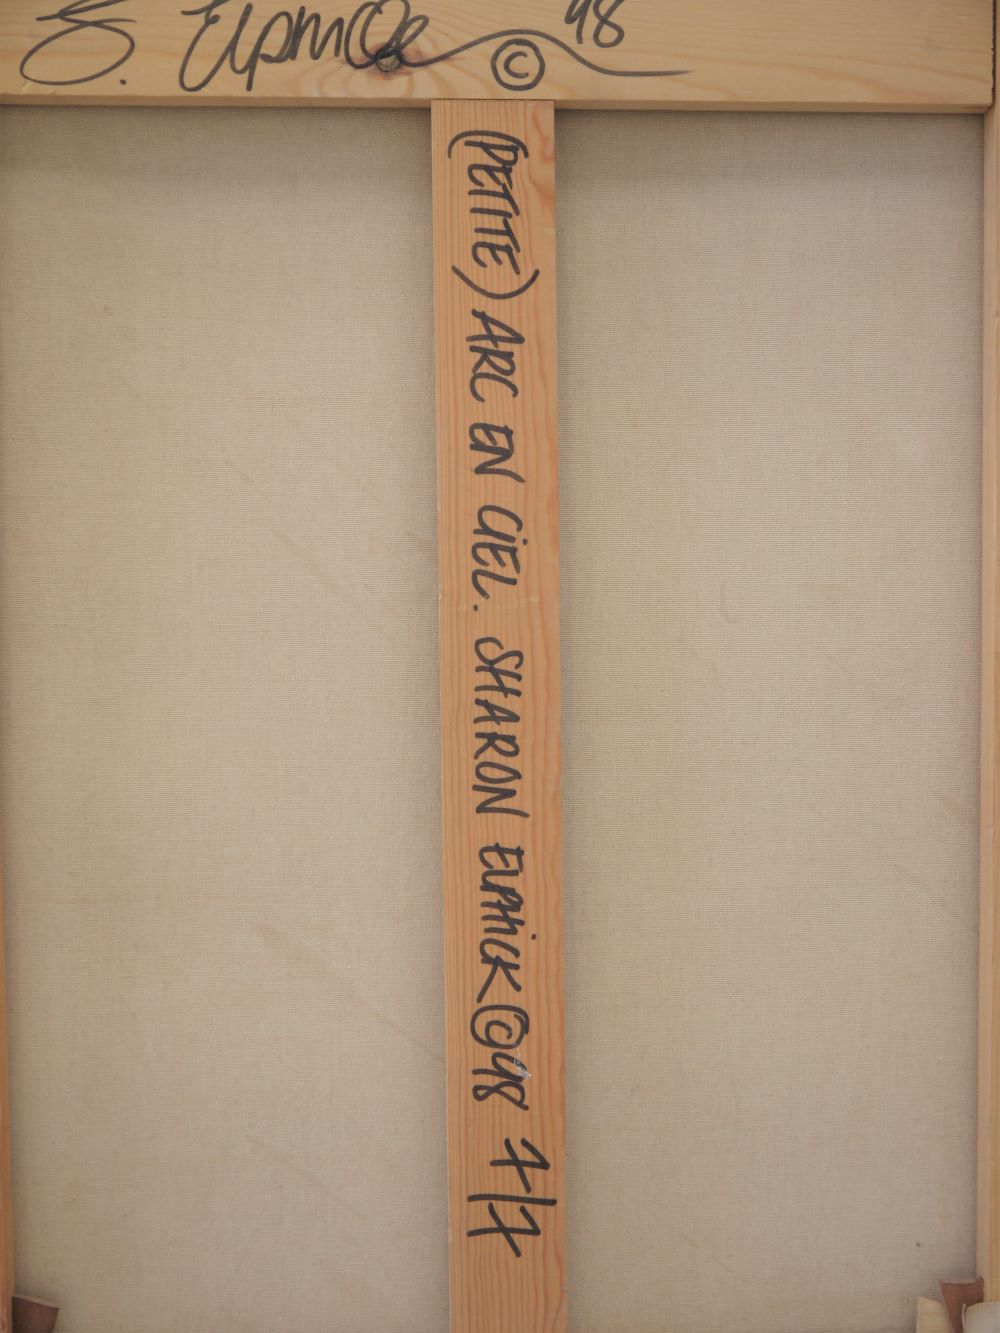 S. Elphick © 98
(PETITE) ARC EN CIEL. SHARON ELPHICK © 98 7/7